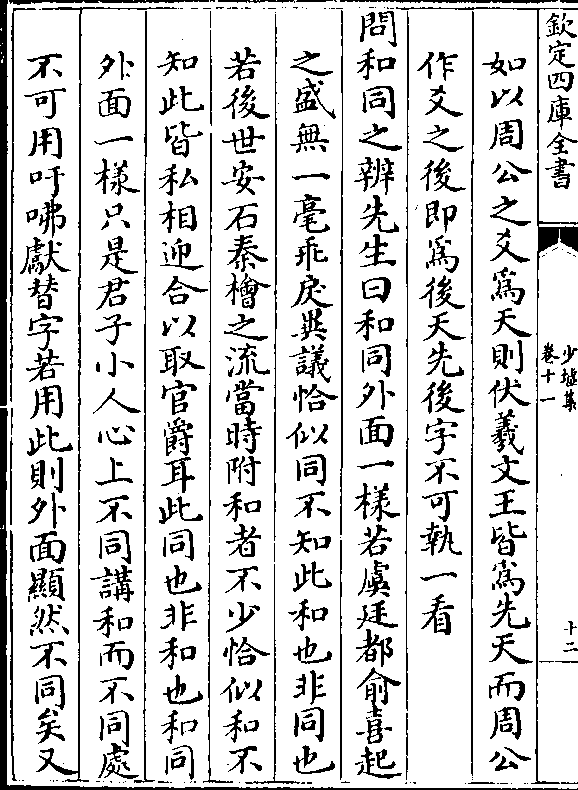 欽定四庫全書
少墟集
卷十一
十二
如以周公之爻為天則伏羲文王皆為先天而周公
作爻之後即為後天先後字不可執一看
問和同之辨先生曰和同外面一様若虞廷都俞喜起
之盛無一毫乖戾異議恰似同不知此和也非同也
若後世安石秦檜之流當時附和者不少恰似和不
知此皆私相迎合以取官爵耳此同也非和也和同
外面一様只是君子小人心上不同講和而不同處
不可用吁咈獻替字若用此則外面顯然不同矣又